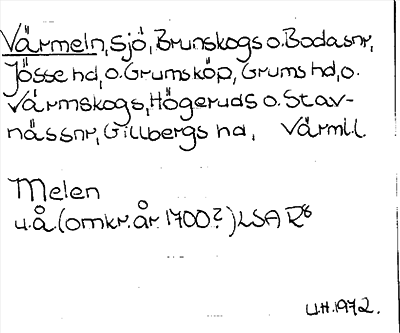 Värmeln, sjö, Brunskogs o. Bodasnr,
Jösse hd, o. Grums köp, Grums hd, o.
Värmskogs, Högeruds o. Stav-
nässnr, Gillbergs hd. Värml.
Melen
u.å. (omkr. år 1700?) LSA R8
U.H. 1972.